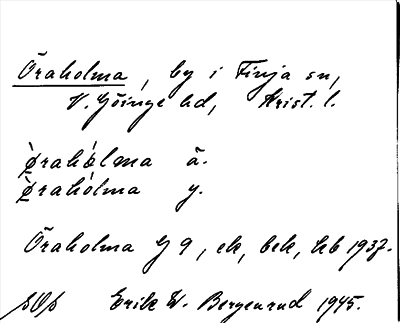 Öraholma, by i Finja sn,
V. Göinge hd, Krist. l.
Ø̀rahólma ä.
Ø̀rahólma y.
Öraholma G 9, ek, bek, kb 1937.
Erik W. Bergenrud 1945.